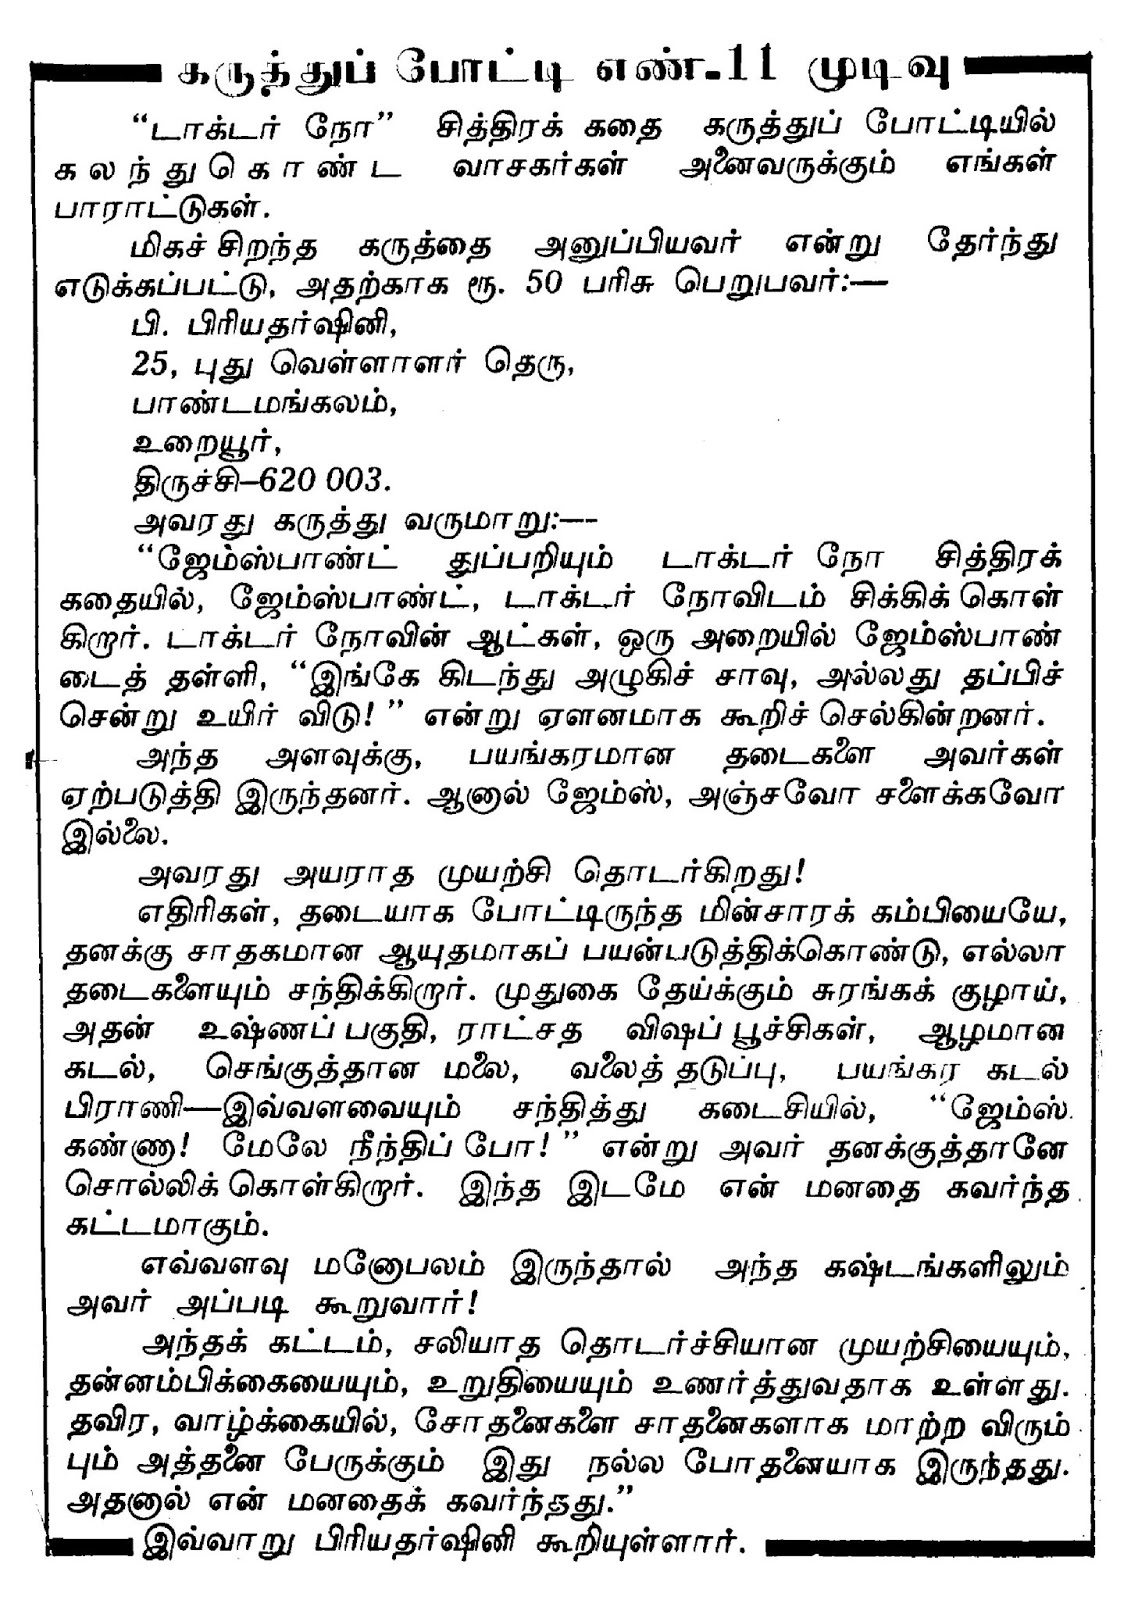 கருத்துப் போட்டி எண்-11 முடிவு
“டாக்டர் நோ” சித்திரக் கதை கருத்துப் போட்டியில்
கலந்துகொண்ட வாசகர்கள் அனைவருக்கும் எங்கள்
பாராட்டுகள்.
மிகச் சிறந்த கருத்தை அனுப்பியவர் என்று தேர்ந்து
எடுக்கப்பட்டு, அதற்காக ரூ. 50 பரிசு பெறுபவர்:—
பி. பிரியதர்ஷினி,
25, புது வெள்ளாளர் தெரு,
பாண்டமங்கலம்,
உறையூர்,
திருச்சி—620 003.
அவரது கருத்து வருமாறு:—-
“ஜேம்ஸ்பாண்ட் துப்பறியும் டாக்டர் நோ சித்திரக்
கதையில், ஜேம்ஸ்பாண்ட், டாக்டர் நோவிடம் சிக்கிக் கொள்
கிறார். டாக்டர் நோவின் ஆட்கள், ஒரு அறையில் ஜேம்ஸ்பாண்
டைத் தள்ளி, “இங்கே கிடந்து அழுகிச் சாவு, அல்லது தப்பிச்
சென்று உயிர் விடு!” என்று ஏளனமாக கூறிச் செல்கின்றனர்.
அந்த அளவுக்கு, பயங்கரமான தடைகளை அவர்கள்
ஏற்படுத்தி இருந்தனர். ஆனால் ஜேம்ஸ், அஞ்சவோ சளைக்கவோ
இல்லை.
அவரது அயராத முயற்சி தொடர்கிறது!
எதிரிகள், தடையாக போட்டிருந்த மின்சாரக் கம்பியையே,
தனக்கு சாதகமான ஆயுதமாகப் பயன்படுத்திக்கொண்டு, எல்லா
தடைகளையும் சந்திக்கிறார். முதுகை தேய்க்கும் சுரங்கக் குழாய்,
அதன் உஷ்ணப் பகுதி, ராட்சத விஷப் பூச்சிகள், ஆழமான
கடல், செங்குத்தான மலை, வலைத் தடுப்பு, பயங்கர கடல்
பிராணி—இவ்வளவையும் சந்தித்து கடைசியில், “ஜேம்ஸ்
கண்ணா! மேலே நீந்திப் போ!” என்று அவர் தனக்குத்தானே
சொல்லிக் கொள்கிறார். இந்த இடமே என் மனதை கவர்ந்த
கட்டமாகும்.
எவ்வளவு மனோபலம் இருந்தால் அந்த கஷ்டங்களிலும்
அவர் அப்படி கூறுவார்!
அந்தக் கட்டம், சலியாத தொடர்ச்சியான முயற்சியையும்,
தன்னம்பிக்கையையும், உறுதியையும் உணர்த்துவதாக உள்ளது.
தவிர, வாழ்க்கையில், சோதனைகளை சாதனைகளாக மாற்ற விரும்
பும் அத்தனை பேருக்கும் இது நல்ல போதனையாக இருந்தது.
அதனால் என் மனதைக் கவர்ந்தது.”
இவ்வாறு பிரியதர்ஷினி கூறியுள்ளார்.